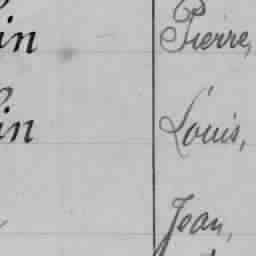 in Pierre,
in Louis,
Jean,